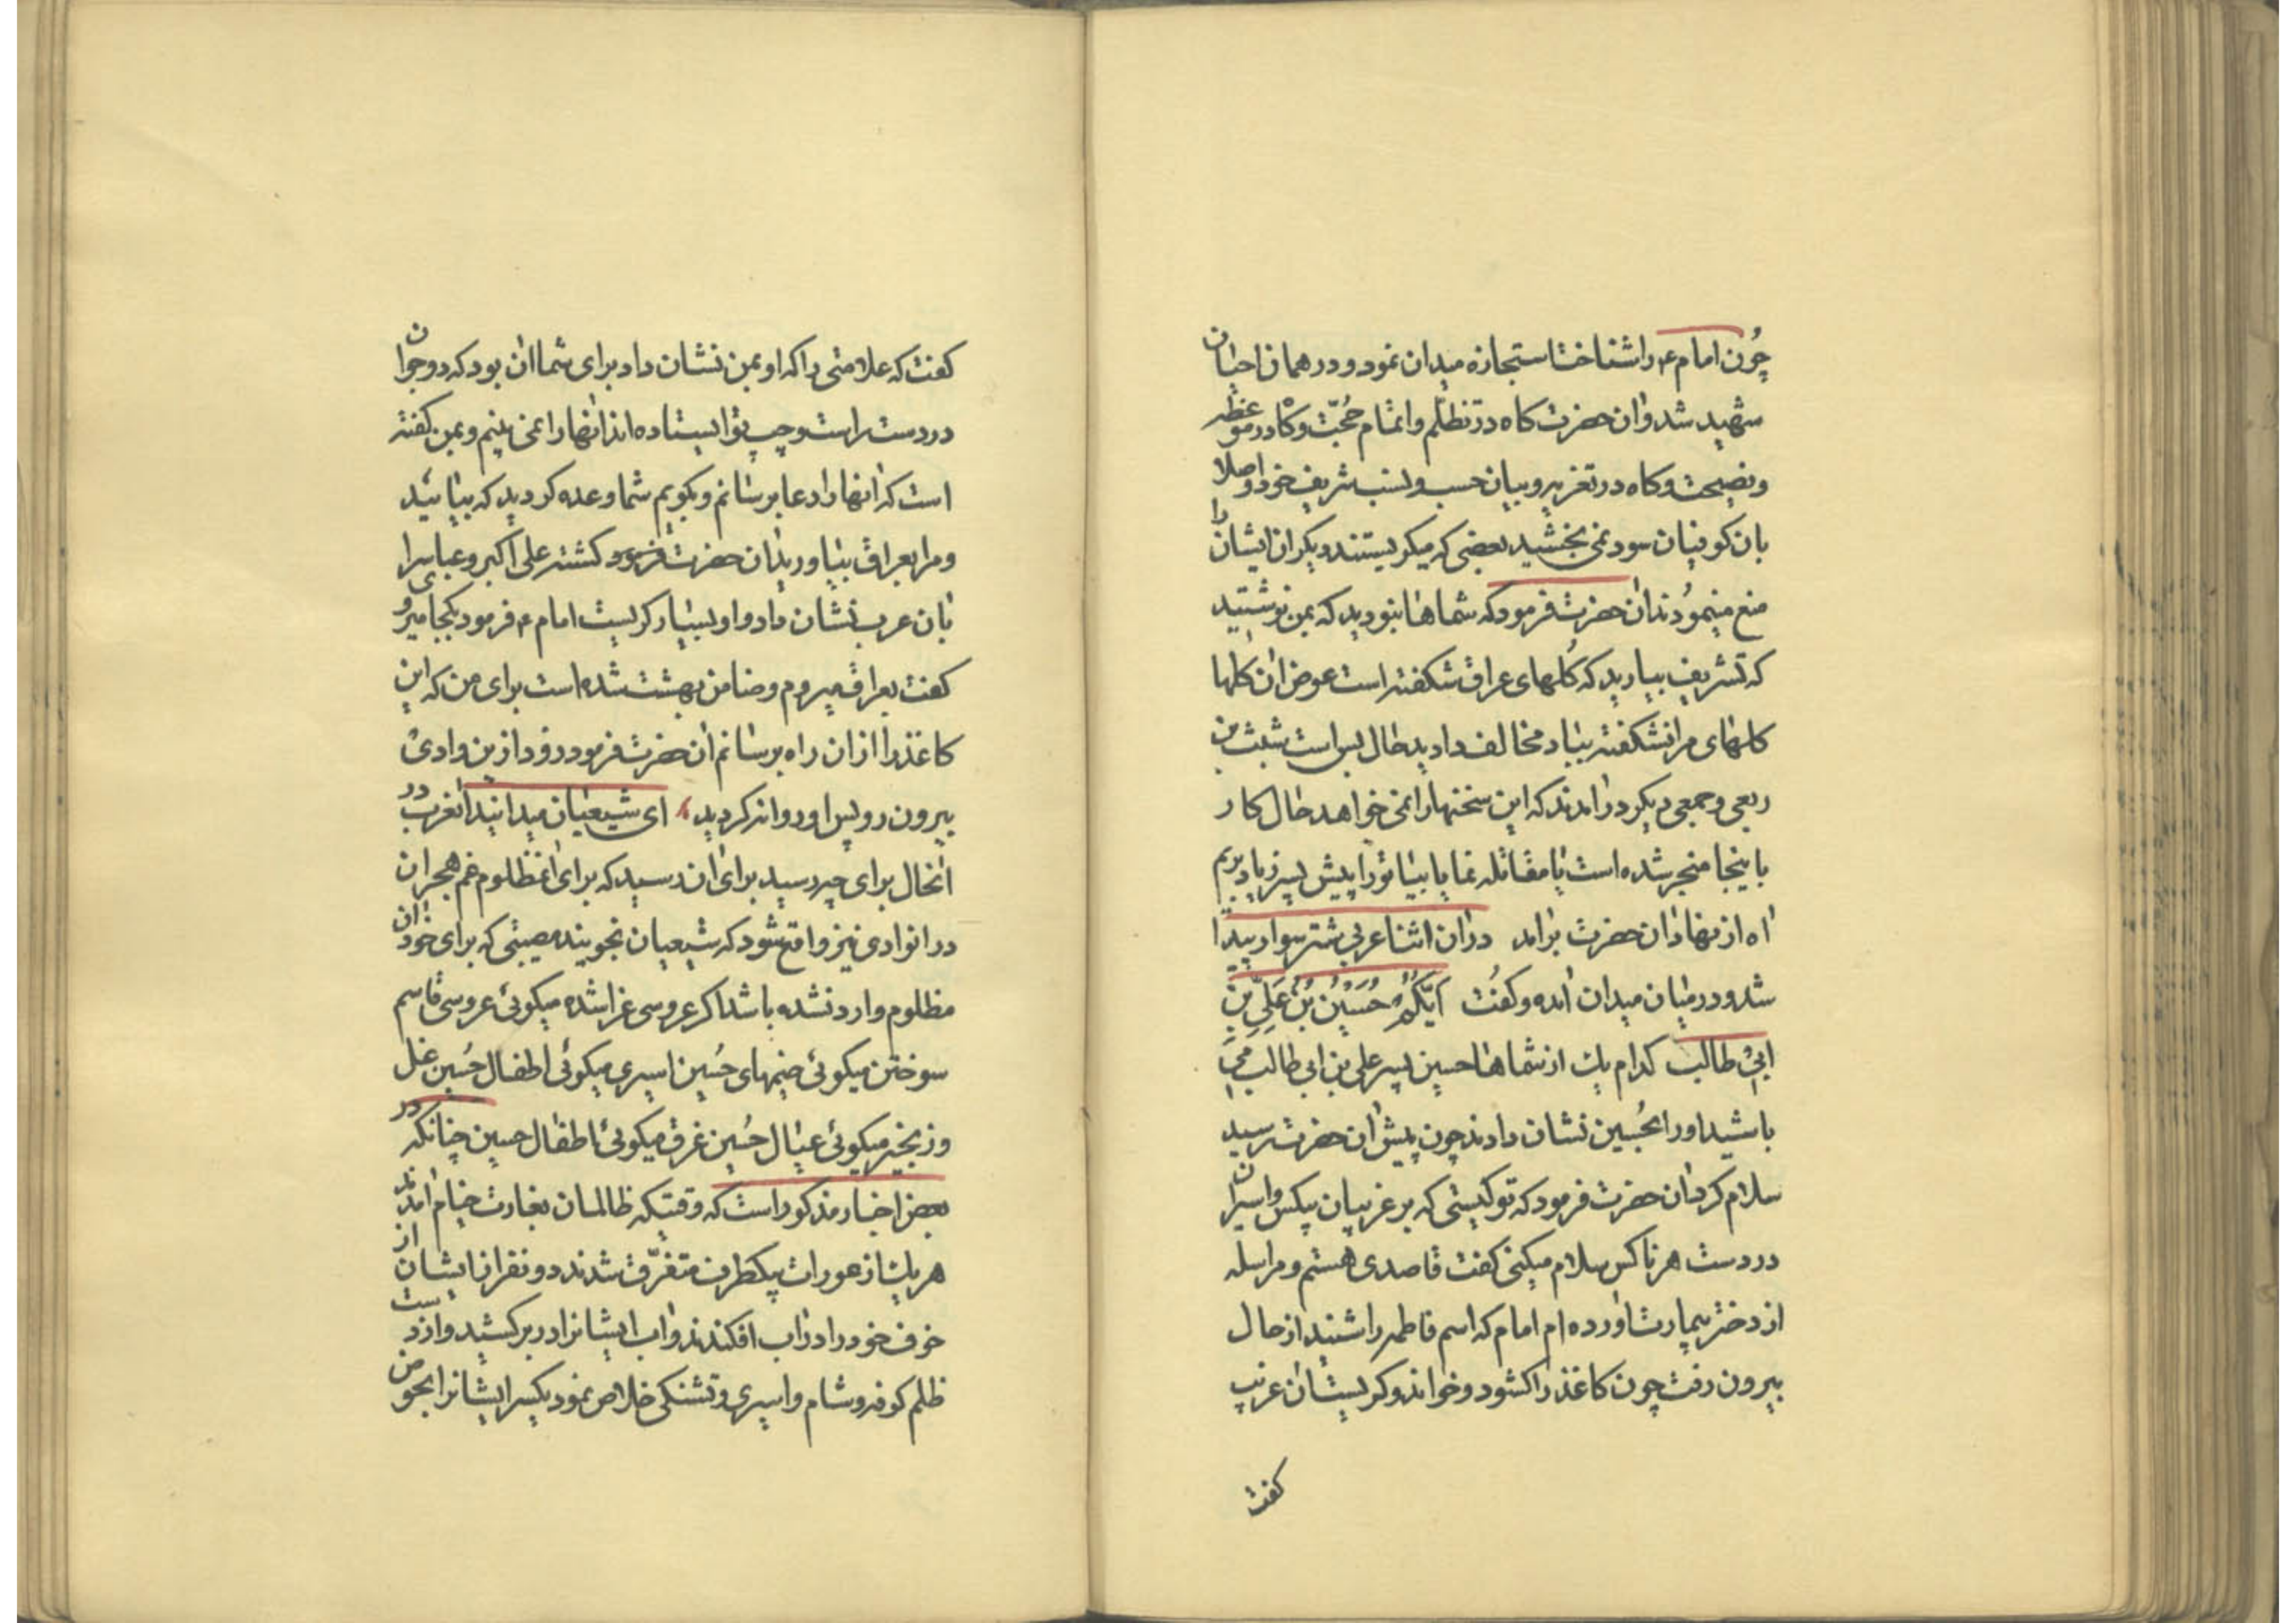 چُون امام ع را شناخت استجازه میدان نمود و در همان احیان
شهید شد و ان حضرت کاه در تظلّم و اتمام حُجّت و کاه در موعظه
و نصیحت و کاه در تعزیر و بیان حسب و نسب شریف خود و اصلا
بان کوفیان سود نمی بخشید بعضی که میکریستند دیکران ایشان را
منع مینمودند ان حضرت فرمود که شماها نبودید که بمن نوشتید
که تشریف بیارید که کُلهای عراق شکفته است عوض ان کلها
کلهای مرا نشکفته بباد مخالف دادید حال بس است شبث بن
ربعی و جمعی دیکر درامدند که این سخنها را نمی خواهد حال کار
باینجا منجر شده است یا مقاتله نما یا بیا تو را پیش پسر زیاد بریم
اه از نهاد ان حضرت برامد دران اثنا عربی شتر سوار پیدا
شد و در میان میدان امده و کفت اَیُّکُمْ حُسَیْنُ بْنُ عَلِیِّ بْنِ
ابی طالب کدام یک از شماها حسین پسر علی بن ابی طالب می
باشید او را بحُسین نشان دادند چون پیش ان حضرت رسید
سلام کرد ان حضرت فرمود که تو کیستی که بر غریبان بیکس و اسیران
در دست هر ناکس سلام میکنی کفت قاصدی هستم و مراسله
از دختر بیمارت اورده ام امام که اسم فاطمه را شنید از حال
بیرون رفت چون کاغذ را کشود و خواند و کریست ان عرب
کفت
کفت که علامتی را که او بمن نشان داد برای شما ان بود که دو جوان
در دست راست و چپ تو ایستاده اند انها را نمی بینم و بمن کفته
است که انها را دعا برسانم و بکویم شما وعده کردید که بیائید
و مرا بعراق بیاورید ان حضرت فرمود کشته علی اکبر و عباس را
بان عرب نشان داد و او بسیار کریست امام ع فرمود بکجا میروی
کفت بعراق میروم و ضامن بهشت شده است برای من که این
کاغذ را از ان راه برسانم ان حضرت فرمود زود ازین وادی
بیرون رو پس او روانه کردید ای شیعیان میدانید انعرب در
انحال برای چه رسید برای ان رسید که برای انمظلوم غم هجران
در انوادی نیز واقع شود که شیعیان نجویند مصیبتی که برای خود ان
مظلوم وارد نشده باشد اکر عروسی عزا شده میکوئی عروسی قاسم
سوختن میکوئی خیمهای حُسین اسیری میکوئی اطفال حُسین غل
و زنجیر میکوئی عیال حُسین غرق میکوئی اطفال حسین چنانکه در
بعض اخبار مذکور است که وقتیکه ظالمان بغارت خیام امدند
هر یک از عورات بیکطرف متفرّق شدند دو نفر از ایشان از
خوف خود را در اب افکندند و اب ایشانرا در بر کشید و از دست
ظلم کوفه و شام و اسیری و تشنکی خلاص نمود یکسر ایشانرا بحوض